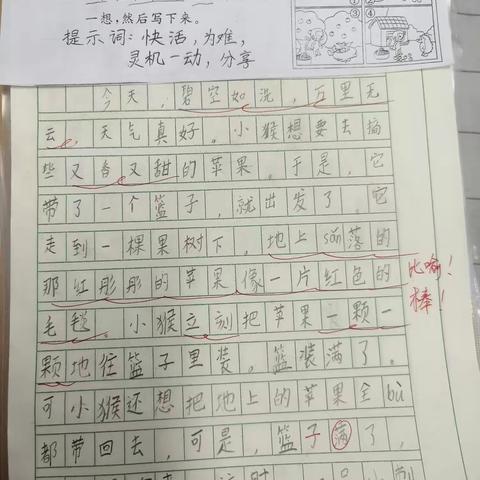 一想,然后写下来。
提示词:快活,为难,
灵机一动,分享
③ ④
今天,碧空如洗,万里无
云,天气真好。小猴想要去摘
些又香又甜的苹果。于是,它
带了一个篮子,就出发了。它
走到一棵果树下,地上sǎn落的
那红彤彤的苹果像一片红色的
比喻!
棒!
毛毯。小猴立刻把苹果一颗一
颗地往篮子里装,篮装满了。
可小猴还想把地上的苹果全bù
都带回去,可是,篮子满了,